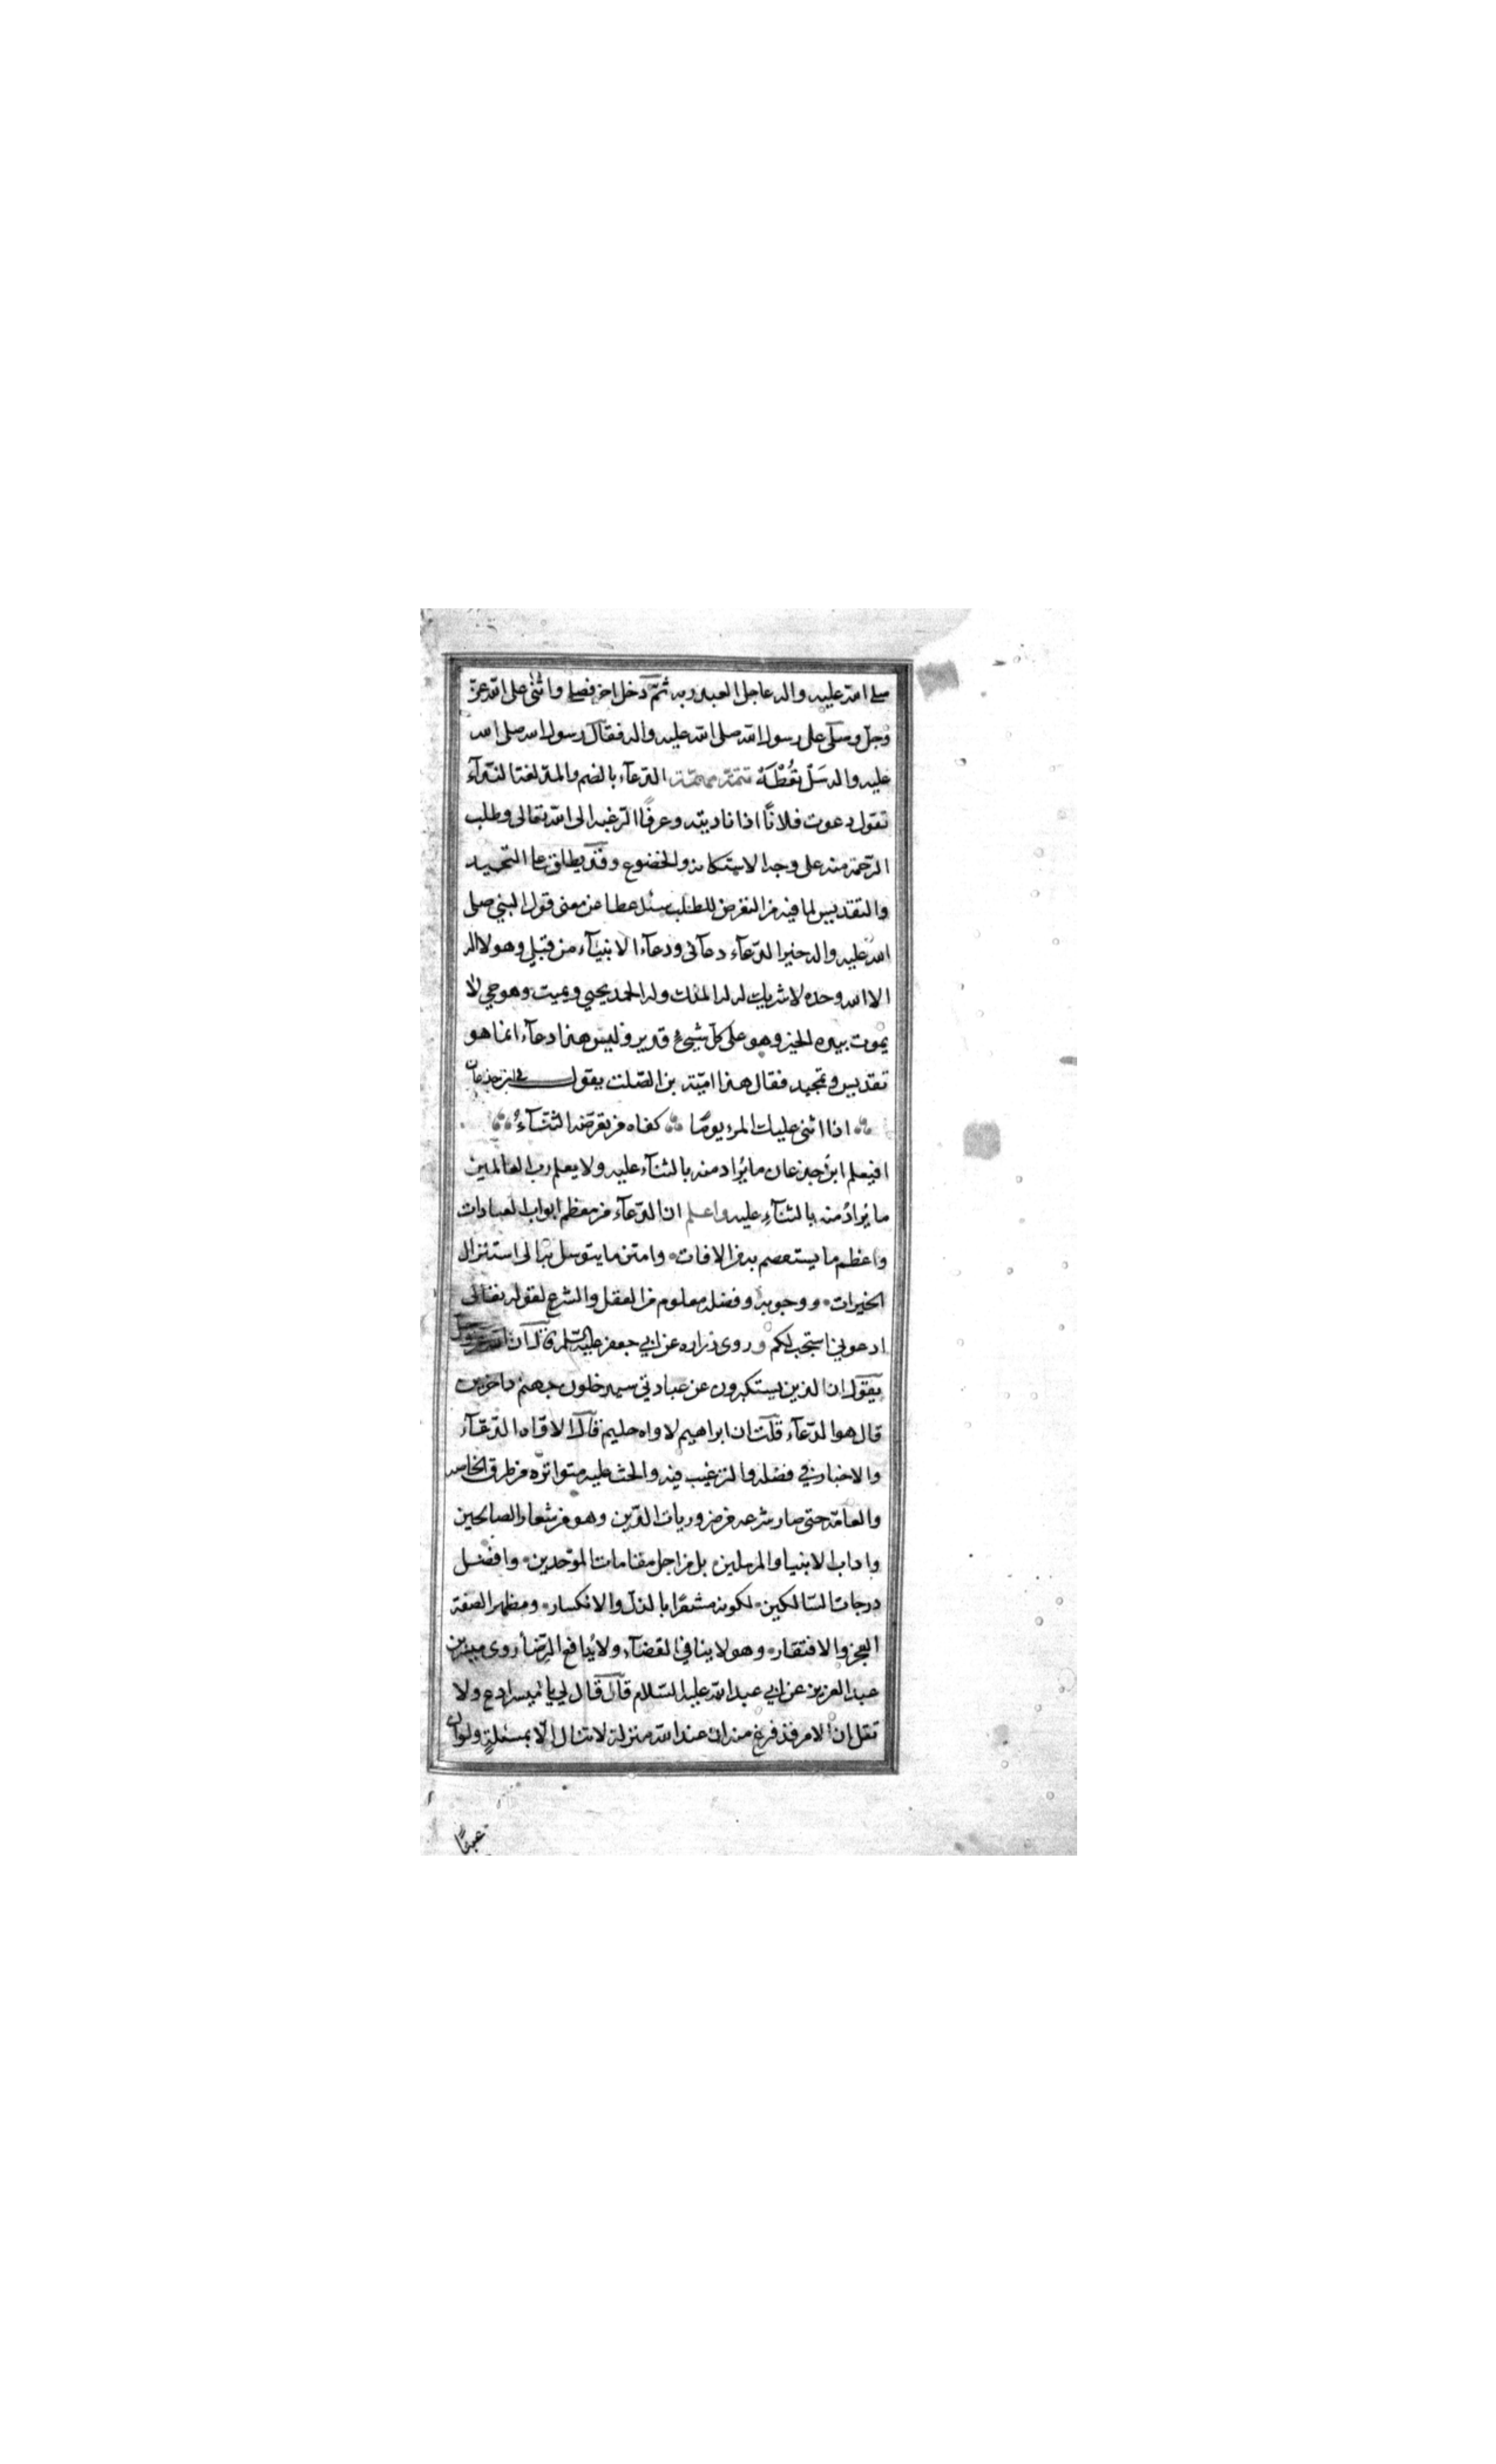 صلى الله عليه واله عاجل العبد ربه ثمّ دخل اخر فصلى واثنى على الله عزّ
وجلّ وصلّى على رسول الله صلى الله عليه واله فقال رسول الله صلى الله
عليه واله سَلْ تُعْطَهْ تتمّة مهمّة الدّعاء بالضم والمدّ لغة النّدآء
تقول دعوت فلانًا اذا ناديته وعرفًا الرّغبة الى الله تعالى وطلب
الرّحمة منه على وجه الاستكانة والخضوع وقد يطلق على التحميد
والتقديس لما فيه من التعرض للطلب سئل عطا عن معنى قول النبي صلى
الله عليه واله خير الدّعآء دعآئى ودعآء الانبيآء من قبلي وهو لا اله
الا الله وحده لا شريك له له الملك وله الحمد يحيي ويميت وهو حي لا
يموت بيده الخير وهو على كلّ شيئ قدير وليس هذا دعآء انما هو
تقديس وتمجيد فقال هذا اميّة بن الصّلت يقول في ابن جذعان
اذا اثنى عليك المرء يومًا كفاه من تعرّضه الثنآءُ
افيعلم ابن جذعان ما يُراد منه بالثنآء عليه ولا يعلم رب العالمين
ما يُرادُ منه بالثنآءِ عليه واعلم ان الدّعآء من معظم ابواب العبادات
واعظم ما يستعصم به من الافات وامتن ما يتوسل به الى استنزال
الخيرات ووجوبه وفضله معلوم من العقل والشرع لقوله تعالى
ادعوني استجب لكم وروى زراره عن ابي جعفر عليه السّلم قال ان الله عزّ وجلّ
يقول ان الذين يستكبرون عن عبادتي سيدخلون جهنم داخرين
قال هو الدّعآء قلت ان ابراهيم لاواه حليم قال الاوّاه الدّعّآء
والاخبار في فضله والترغيب فيه والحث عليه متواترة من طرق الخاصه
والعامّة حتى صار شرعه من ضروريات الدّين وهو من شعار الصالحين
واداب الانبيا والمرسلين بل من اجل مقامات الموّحدين وافضل
درجات السّالكين لكونه مشعرًا بالذل والانكسار ومظهر الصفة
العجز والافتقار وهو لا ينافي القضآء ولا يُدافع الرّضا روى ميسر بن
عبد العزيز عن ابي عبد الله عليه السّلام قال قال لي يا ميسر ادع ولا
تقل ان الامر قد فرغ منه ان عند الله منزلة لا تنال الّا بمسئلةٍ ولو ان
عبدًا